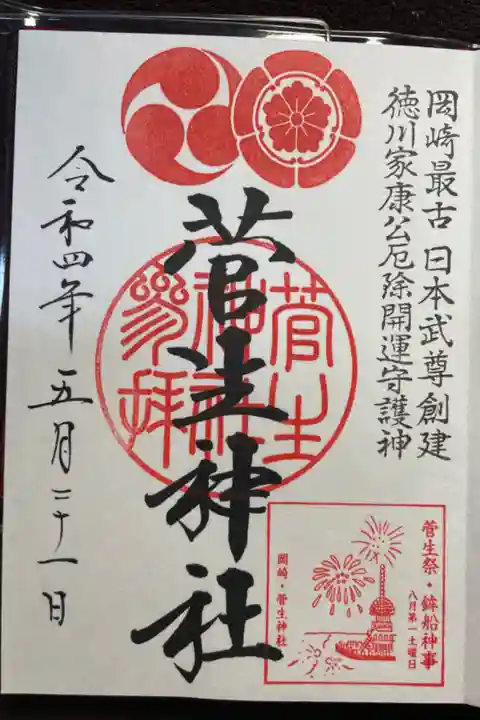 岡崎最古 日本武尊創建
徳川家康公厄除開運守護神
菅生神社
菅生神社参拝
令和四年五月二十一日
菅生祭・鉾船神事
八月第一土曜日
岡崎・菅生神社